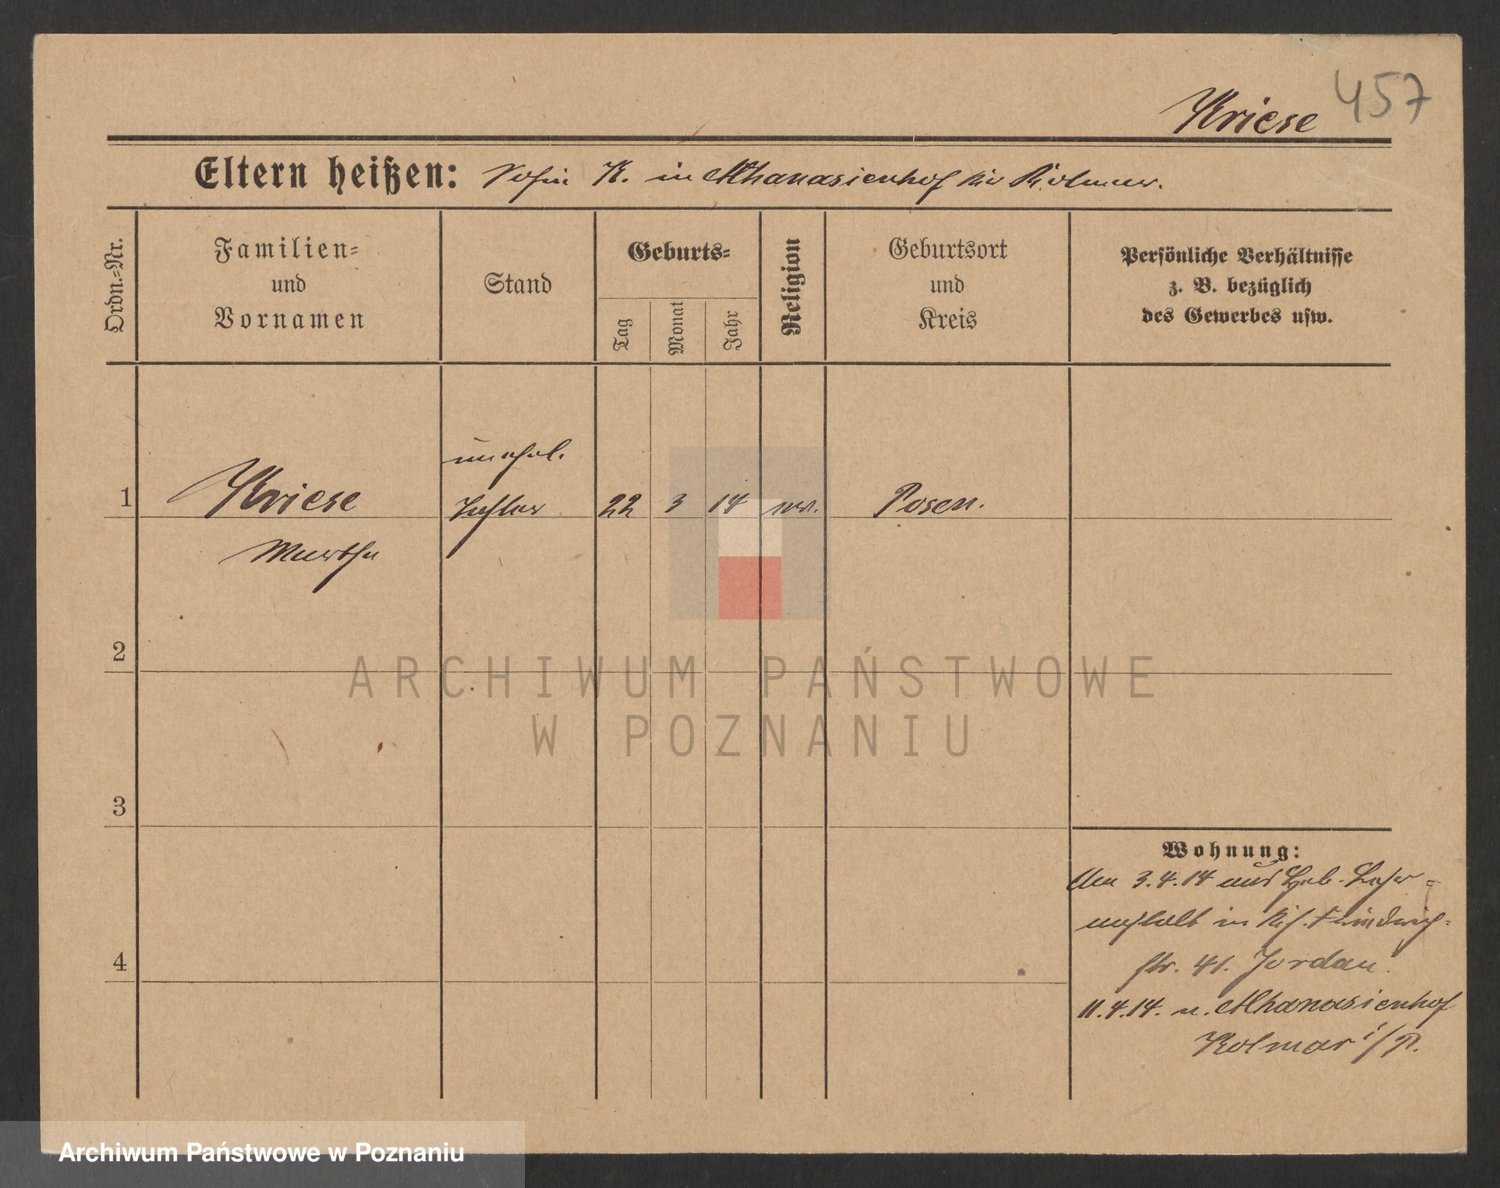 Kriese 457
Eltern heißen: K. in Athanasienhof Kolmar.
Ordn.-Nr.
Familien- und Vornamen
Stand
Geburts-
Tag
Monat
Jahr
Religion
Geburtsort und Kreis
Persönliche Verhältnisse
z. B. bezüglich
des Gewerbes usw.
unehel.
1 Kriese Tochter 22 3 14 ev. Posen.
Martha
2
ARCHIWUM PAŃSTWOWE
W POZNANIU
3
Wohnung:
Am 3.4.14 aus Heb. Lehr-
anstalt in bish.
4
str. 41. Jordan.
11.4.14. n. Athanasienhof
Kolmar i/P.
Archiwum Państwowe w Poznaniu